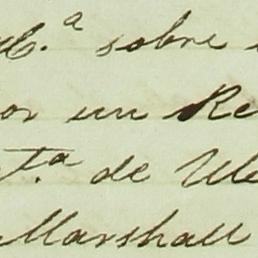 sobre
or un Re
t.ª de Ule
Marshall